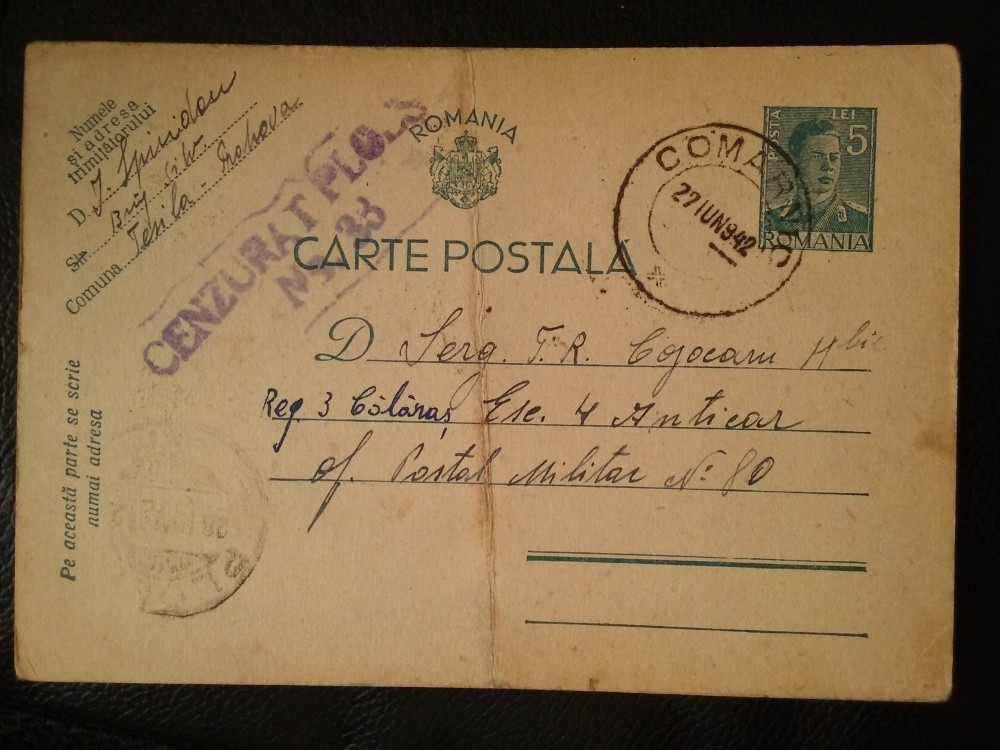 Numele
și adresa
trimițătorului
D. J. Spiridon
Str. Brig. Silv.
Comuna Teșila - Prahova
CENZURAT PLOEȘ
No 33
ROMANIA
CARTE POSTALA
POSTA LEI 5
ROMANIA
COMARNIC
27 IUN 942
D Serg. T.R. Cojocaru
Reg. 3 Călăraș Esc. 4 Anticar
of. Postal Militar No. 80
Pe această parte se scrie
numai adresa